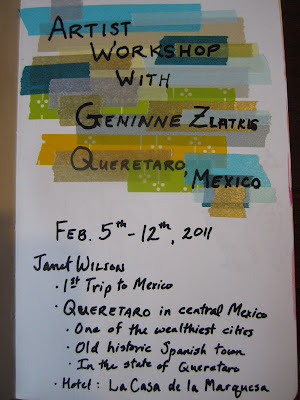 ARTIST
WORKSHOP
WITH
GENINNE ZLATKIS
QUERETARO,
MEXICO
FEB. 5th - 12th, 2011
Janet WILSON
· 1st Trip to Mexico
· QUERETARO in central Mexico
· One of the wealthiest cities
· Old historic Spanish town
· In the state of Queretaro
· Hotel: La Casa de la Marquesa